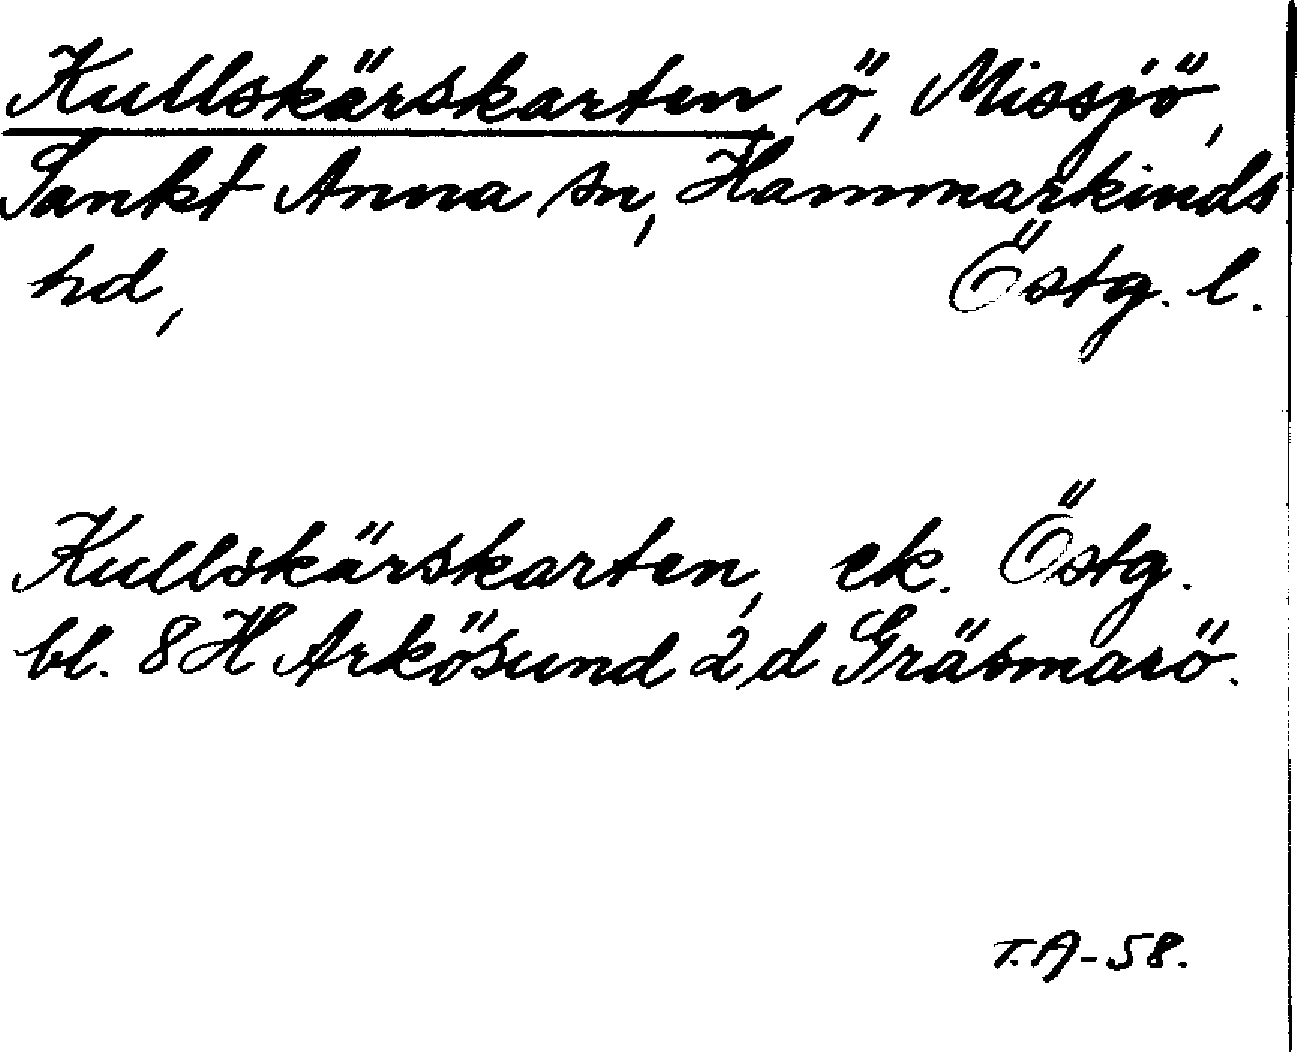 Kullskärskarten, ö, Missjö,
Sankt Anna sn, Hammarkinds
hd, Östg. l.
Kullskärskarten, ek. Östg.
bl. 8 H Arkösund 2 d Gräsmarö.
T.A-58.